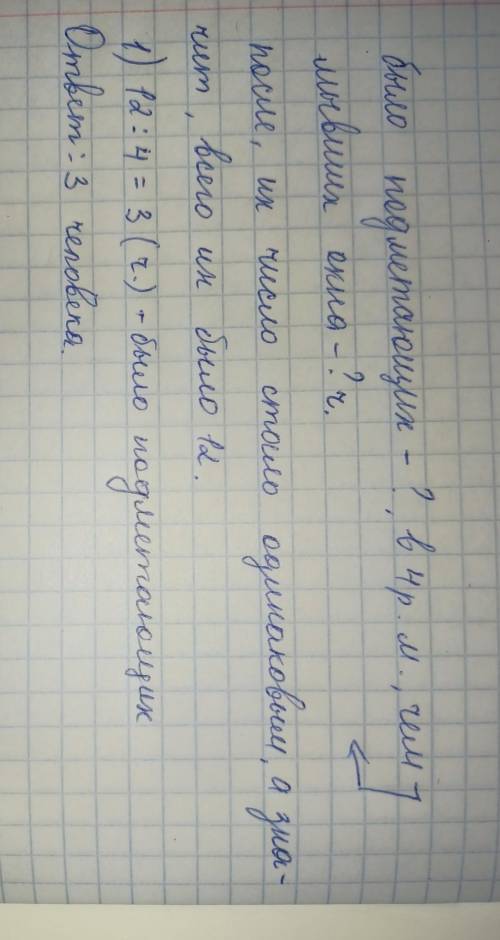 было подметающих - ?, в 4 р. м., чем
мывших окна - ? ч.
после, их число стало одинаковым, а зна-
чит, всего их было 12.
1) 12 : 4 = 3 (ч.) - было подметающих
Ответ: 3 человека.